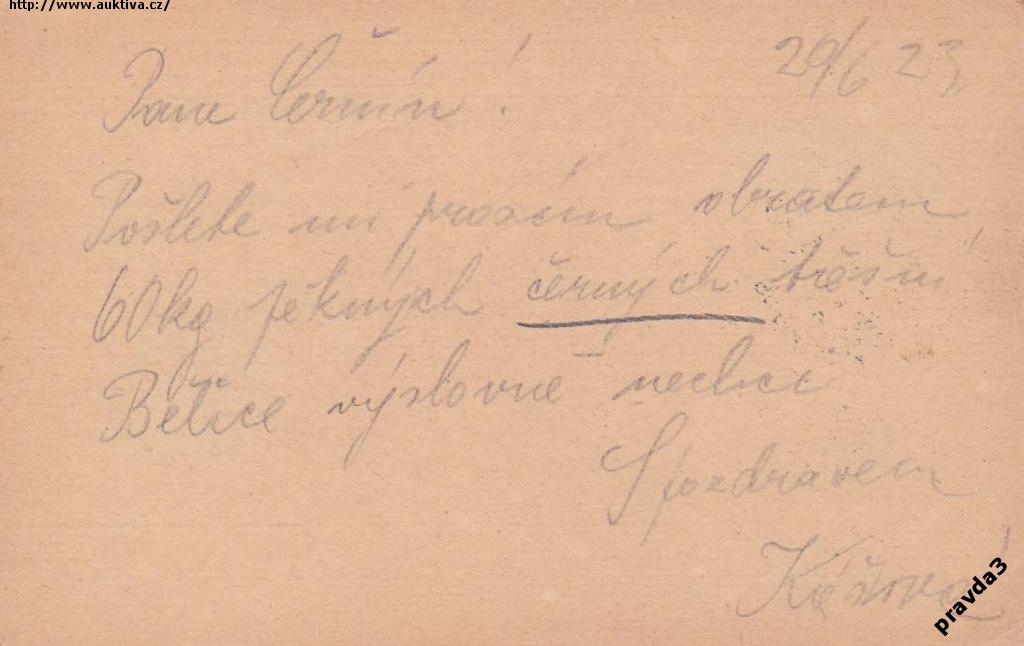 http://www.auktiva.cz/
29/6 23
Pane !
Pošlete mi prosím obratem
60kg pěkných černých třešní
Bělice výslovně nechci
S pozdravem
pravda3